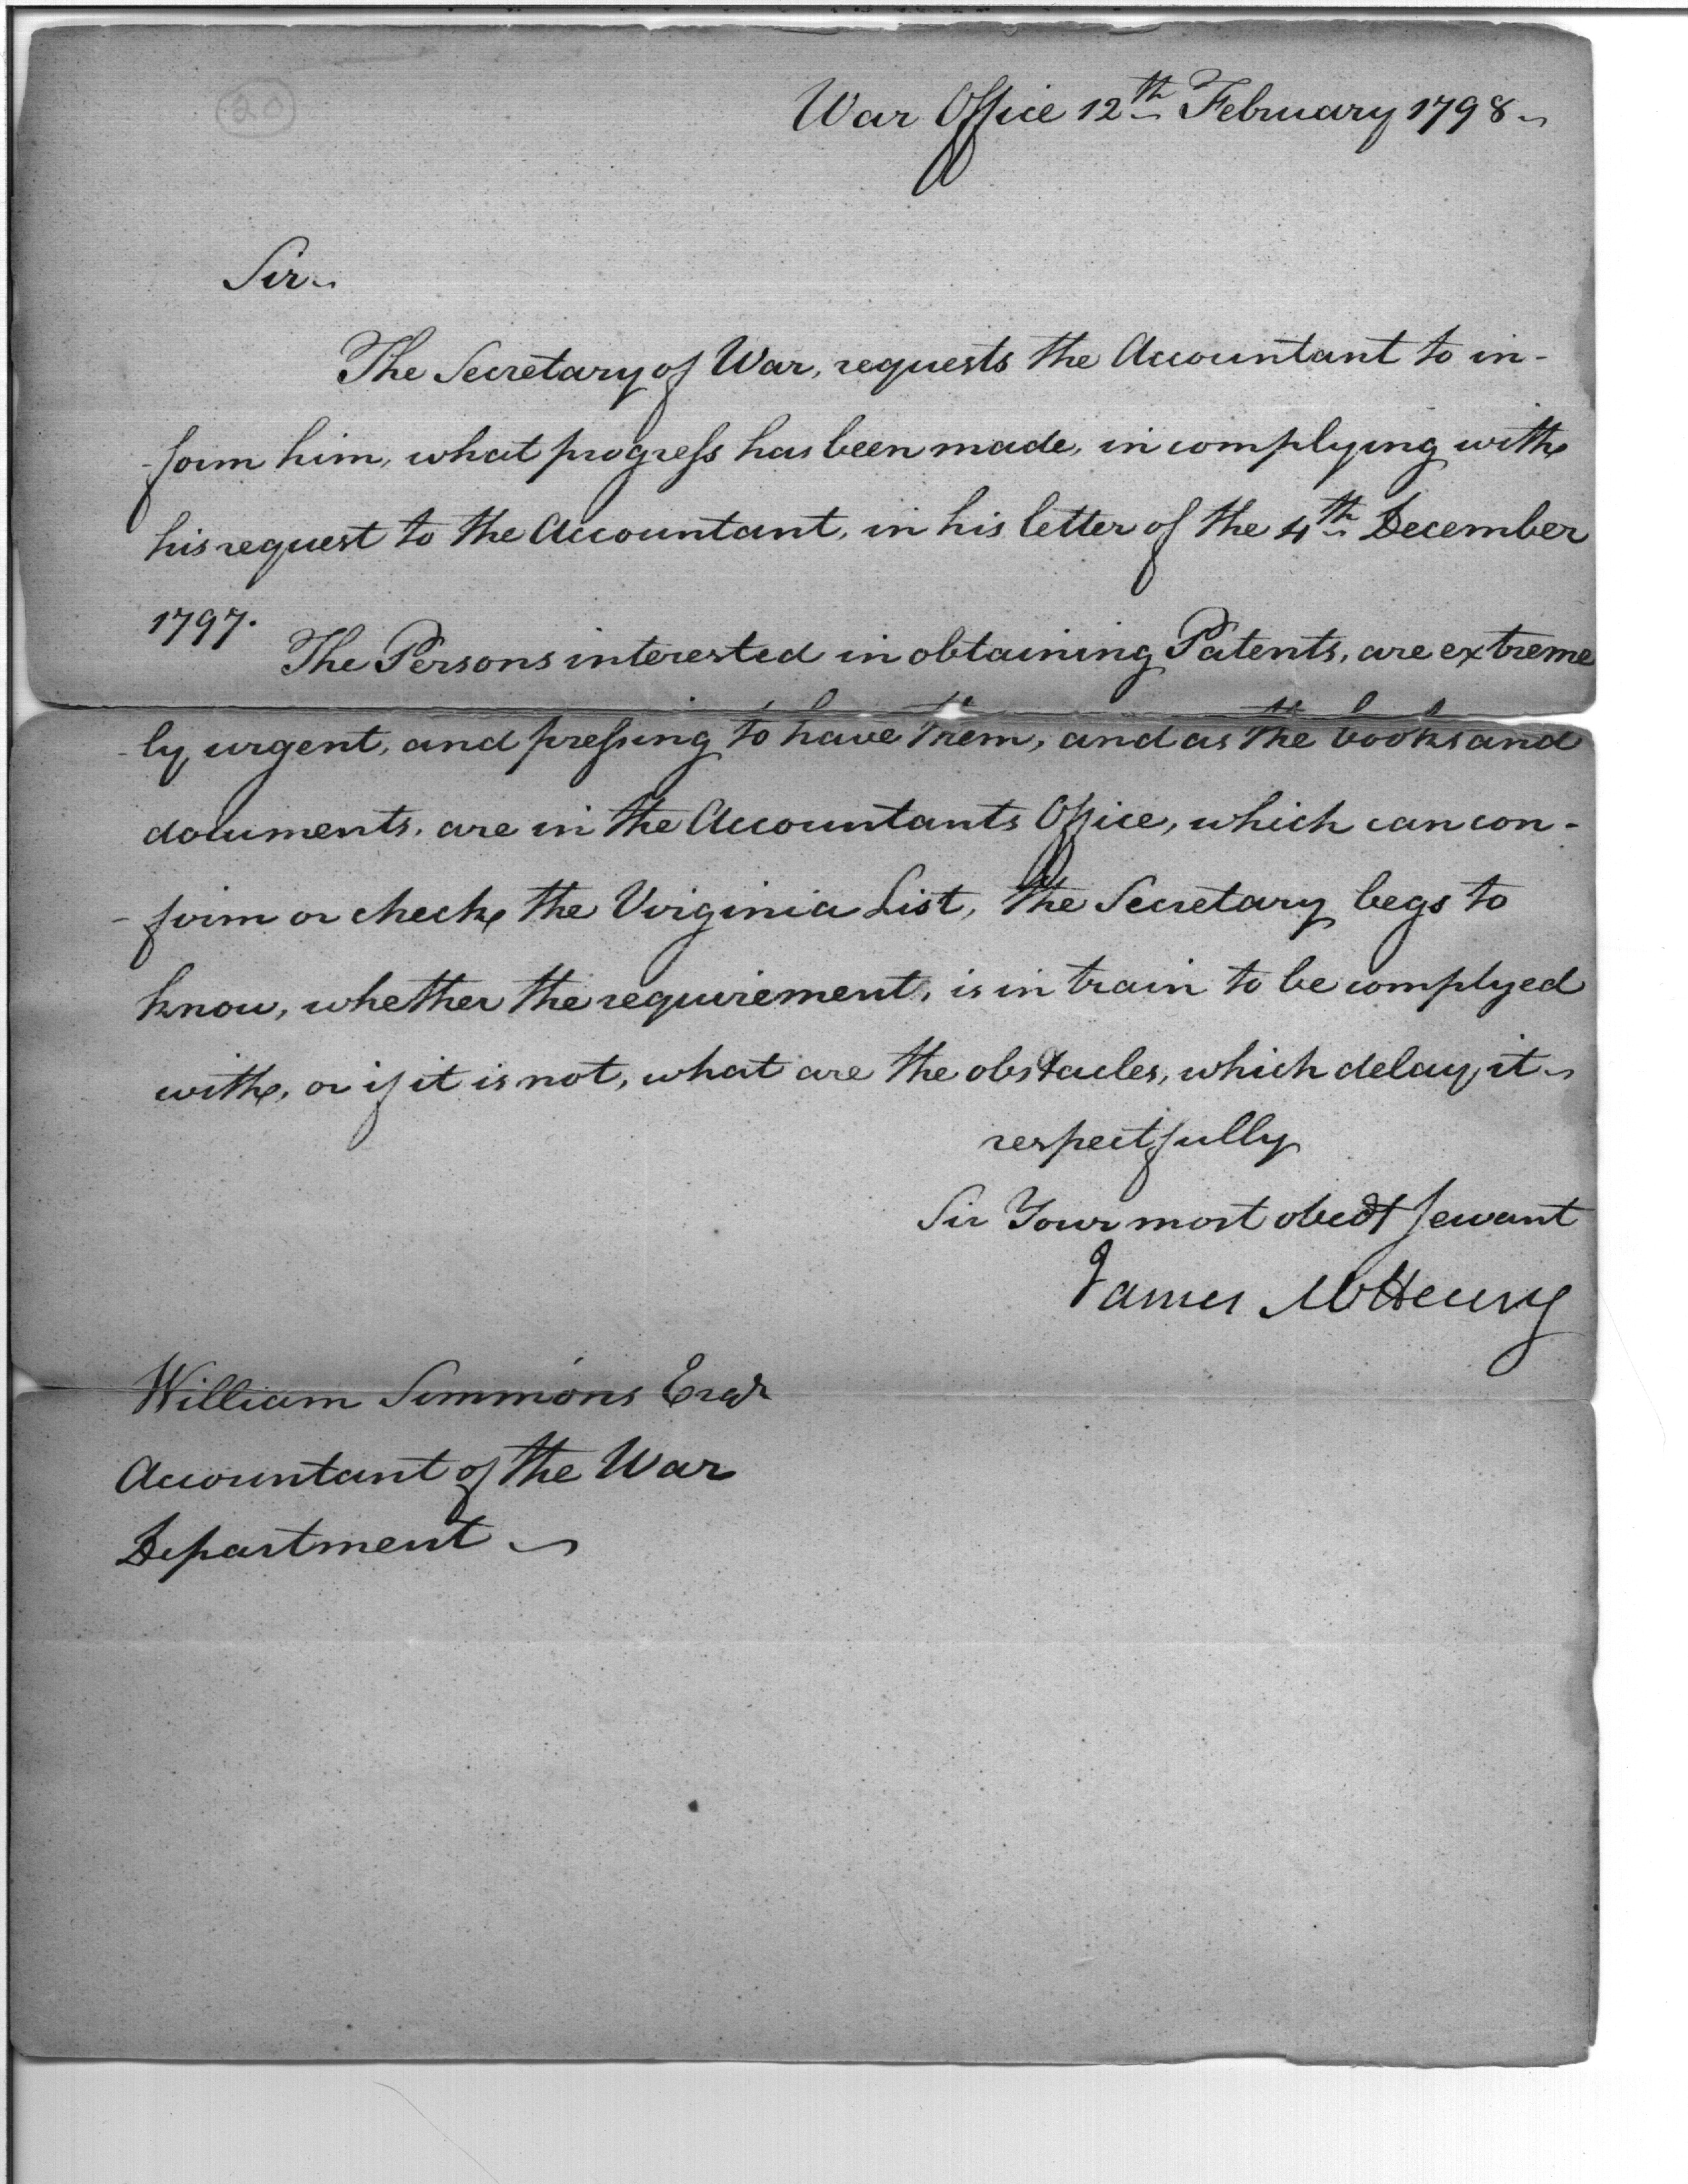 20
War Office 12th February 1798
Sir
The Secretary of War, requests the Accountant to in-
-form him, what progress has been made, in complying with
his request to the Accountant, in his letter of the 4th December
1797.
The Persons interested in obtaining Patents, are extreme
-ly urgent, and pressing to have them, and as the books and
documents, are in the Accountants Office, which can con-
-firm or check the Virginia List, the Secretary begs to
know, whether the requirement, is in train to be complyed
with, or if it is not, what are the obstacles, which delay it
respectfully
Sir Your most obedt Servant
James McHenry
William Simmons Esqr
Accountant of the War
Department